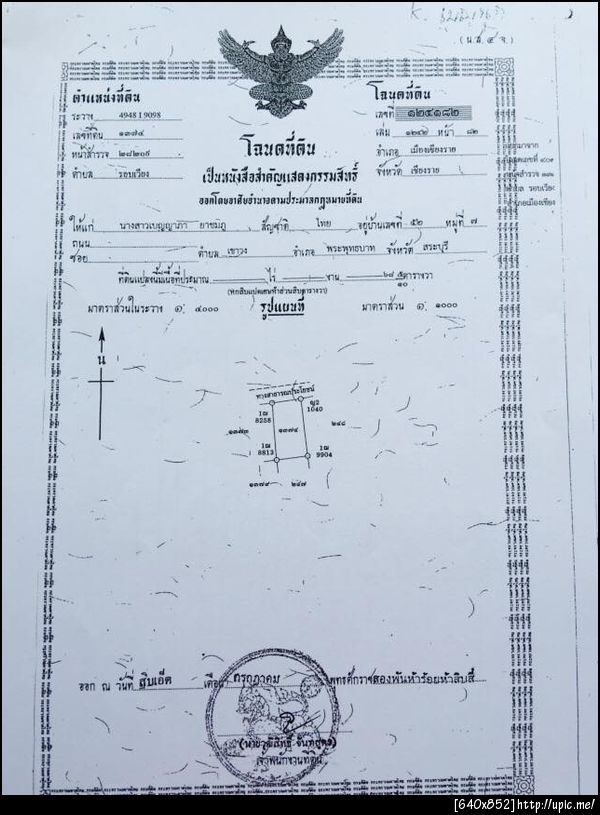 (น.ส.๔ จ.)
ตำแหน่งที่ดิน
ระวาง 4948 I 9098
เลขที่ดิน ๑๓๗๔
หน้าสำรวจ ๒๘๒๐๙
ตำบล รอบเวียง
โฉนดที่ดิน
เลขที่ ๑๒๔๑๘๒
เล่ม ๑๒๔๒ หน้า ๘๒
อำเภอ เมืองเชียงราย
จังหวัด เชียงราย
โฉนดที่ดิน
เป็นหนังสือสำคัญแสดงกรรมสิทธิ์
ออกโดยอาศัยอำนาจตามประมวลกฎหมายที่ดิน
ให้แก่ นางสาวเบญญาภา ยาชมภู สัญชาติ ไทย อยู่บ้านเลขที่ ๕๒ หมู่ที่ ๗
ถนน
ซอย ตำบล เขาวง อำเภอ พระพุทธบาท จังหวัด สระบุรี
ที่ดินแปลงนี้มีเนื้อที่ประมาณ ไร่ งาน ๖๘ ๕/๑๐ ตารางวา
(หกสิบแปดเศษห้าส่วนสิบตารางวา)
มาตราส่วนในระวาง ๑: ๔๐๐๐ รูปแผนที่ มาตราส่วน ๑: ๑๐๐๐
น
ทางสาธารณประโยชน์
1ฒ 8258
ญ2 1040
๑๓๗๓ ๑๓๗๔ ๒๔๘
1ฒ 8813
1ฒ 9904
๑๓๗๙ ๒๔๗
ออก ณ วันที่ สิบเอ็ด เดือน กรกฎาคม พุทธศักราชสองพันห้าร้อยห้าสิบสี่
เจ้าพนักงานที่ดิน
[640x852]http://upic.me/